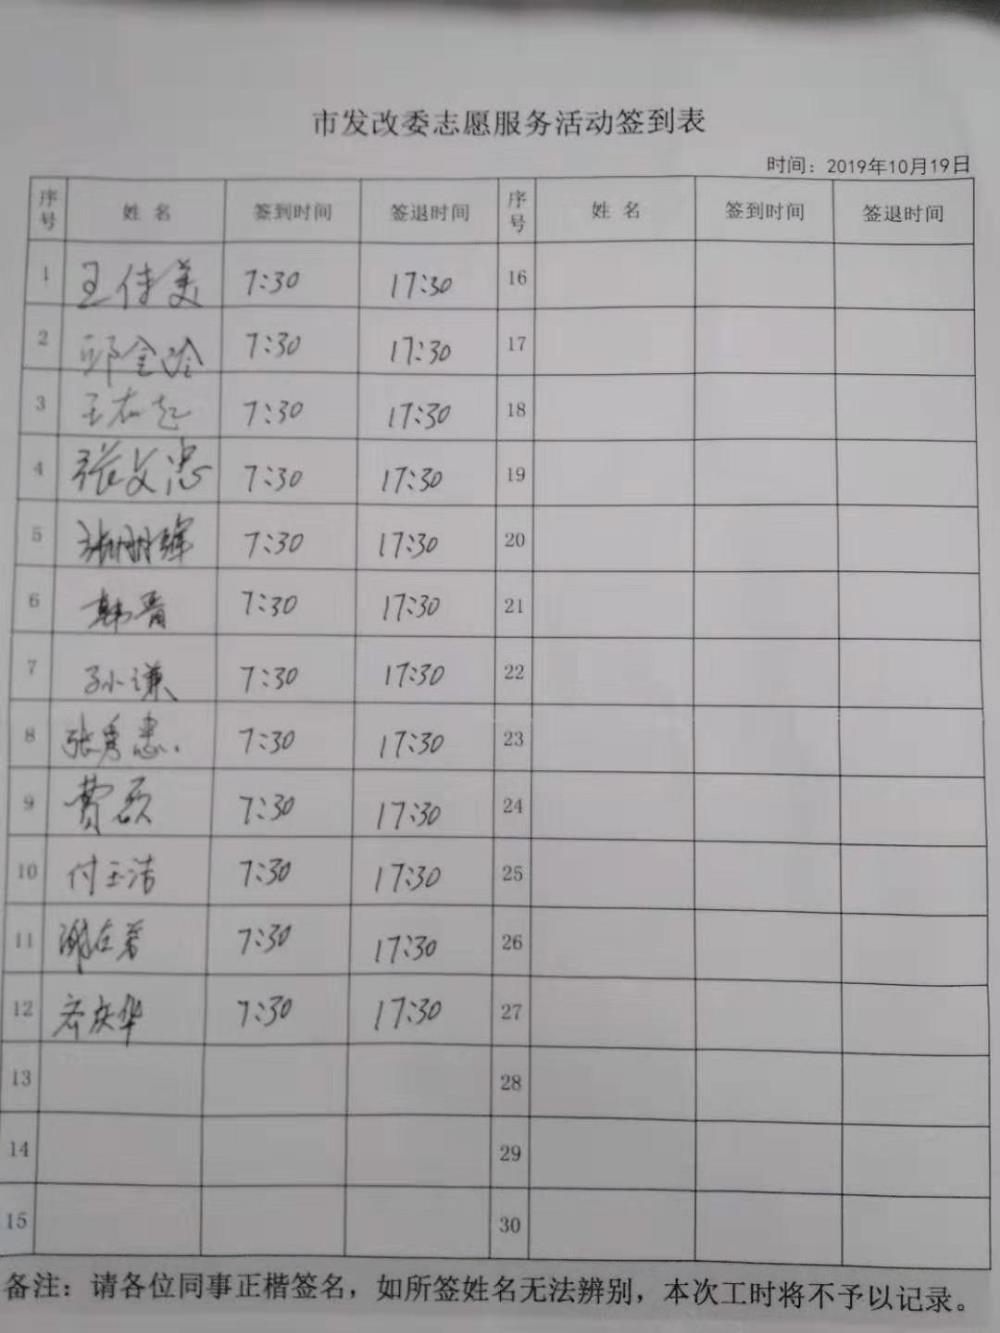 市发改委志愿服务活动签到表
时间：2019年10月19日
序号 姓名 签到时间 签退时间 序号 姓名 签到时间 签退时间
1 王佳美 7:30 17:30 16
2 邱金玲 7:30 17:30 17
3 王 7:30 17:30 18
4 张文忠 7:30 17:30 19
5 张 7:30 17:30 20
6 韩晋 7:30 17:30 21
7 孙小谦 7:30 17:30 22
8 张秀惠 7:30 17:30 23
9 费硕 7:30 17:30 24
10 付玉洁 7:30 17:30 25
11 谢 7:30 17:30 26
12 庆华 7:30 17:30 27
13 28
14 29
15 30
备注：请各位同事正楷签名，如所签姓名无法辨别，本次工时将不予以记录。